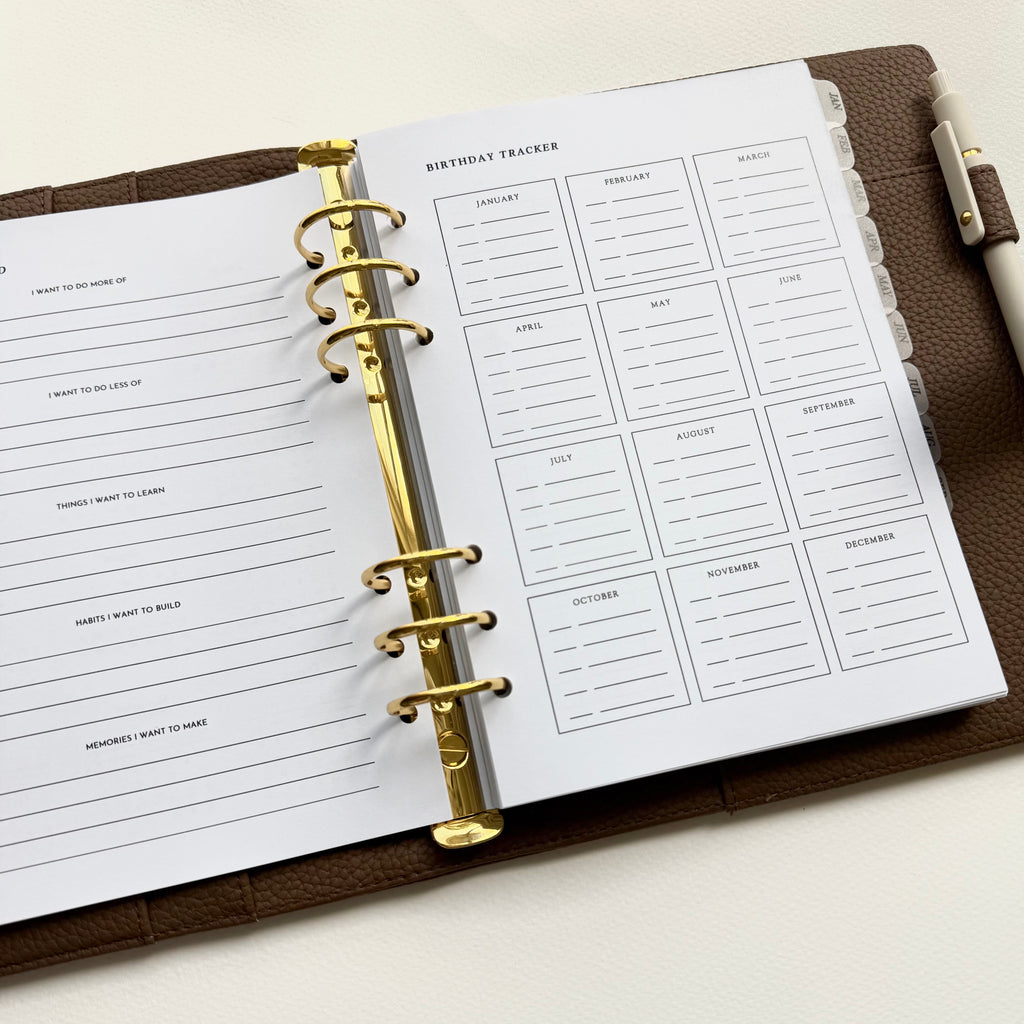 D
I WANT TO DO MORE OF
I WANT TO DO LESS OF
THINGS I WANT TO LEARN
HABITS I WANT TO BUILD
MEMORIES I WANT TO MAKE
BIRTHDAY TRACKER
JANUARY
FEBRUARY
MARCH
APRIL
MAY
JUNE
JULY
AUGUST
SEPTEMBER
OCTOBER
NOVEMBER
DECEMBER
JAN
FEB
MAR
APR
MAY
JUN
JUL
AUG